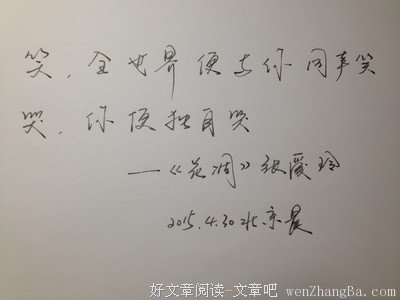 笑,全世界便与你同声笑
哭,你便独自哭
—《花凋》张爱玲
2015.4.30北京晨
好文章阅读-文章吧 wenZhangBa.com